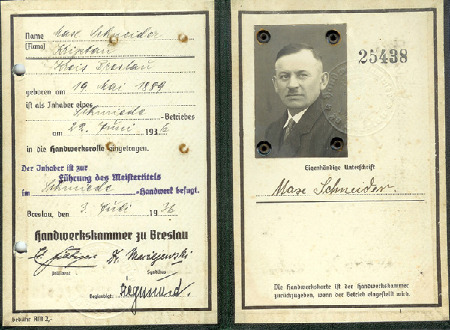 Name Max Schneider
(Firma) Kriptau
Kreis Breslau
geboren am 19 Mai 1889
ist als Inhaber eines
Schmiede-Betriebes
am 22. Juni 1936
in die Handwerksrolle eingetragen.
Der Inhaber ist zur
Führung des Meistertitels
im Schmiede-Handwerk befugt.
Breslau, den 3. Juli 1936
Handwerkskammer zu Breslau
Syndikus
Beglaubigt:
Siegmund.
Gebühr RM 2,-
25438
Eigenhändige Unterschrift
Max Schneider.
Die Handwerkskarte ist der Handwerkskammer
zurückzugeben, wenn der Betrieb eingestellt wird.